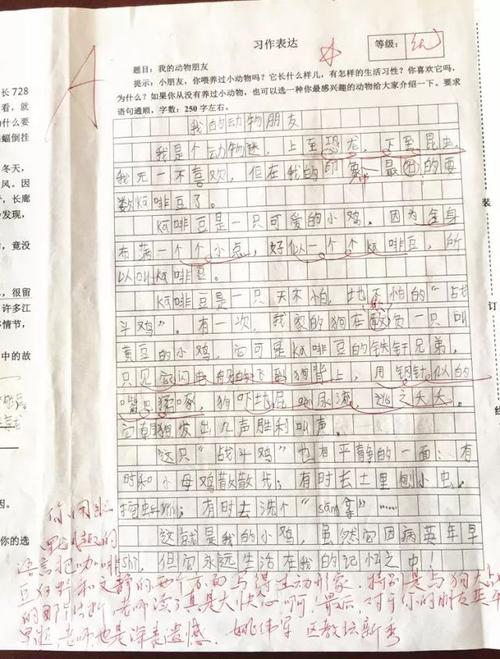 习作表达
等级:
A
题目:我的动物朋友
提示:小朋友,你喂养过小动物吗?它长什么样儿,有怎样的生活习性?你喜欢它吗,
为什么?如果你从没有养过小动物,也可以选一种你最感兴趣的动物给大家介绍一下。要求
语句通顺,字数:250字左右。
我的动物朋友
我是个动物迷,上至恐龙,下至昆虫,
我无一不喜欢,但在我的印象最深的要
数ka啡豆了。
ka啡豆是一只可爱的小鸡。因为全身
布满一个个小点,好似一个个ka啡豆,所
以叫ka啡豆。
ka啡豆是一只天不怕,地不怕的“战
斗鸡”。有一次,我家的狗在欺负一只叫
黄豆的小鸡,它可是ka啡豆的铁杆兄弟,
只见它闪电般的飞到狗背上,用钢针似的
嘴只猛啄,狗吓地屁滚尿流,逃之夭夭。
它朝狗发出几声胜利叫声。
这只“战斗鸡”也有平静的一面:有
时和小母鸡散散步;有时去土里刨小虫,
有时去洗个“sang拿”……
这就是我的小鸡,虽然它因病英年早
shi,但它永远生活在我的记忆之中!
语言把咖啡
豆狂野和文静的两个方面写得生动形象,特别是与狗大战
的那个片断,老师读了真是大快人心啊!最后,对于你的朋友英年
早逝,老师也是深表遗憾。
长 728
看,就
为什么要
蝙蝠倒挂
冬天,
风。因
,长廊
发现,
,竟没
,很留
许多江
情节,
中的故
你的选
装
订
线